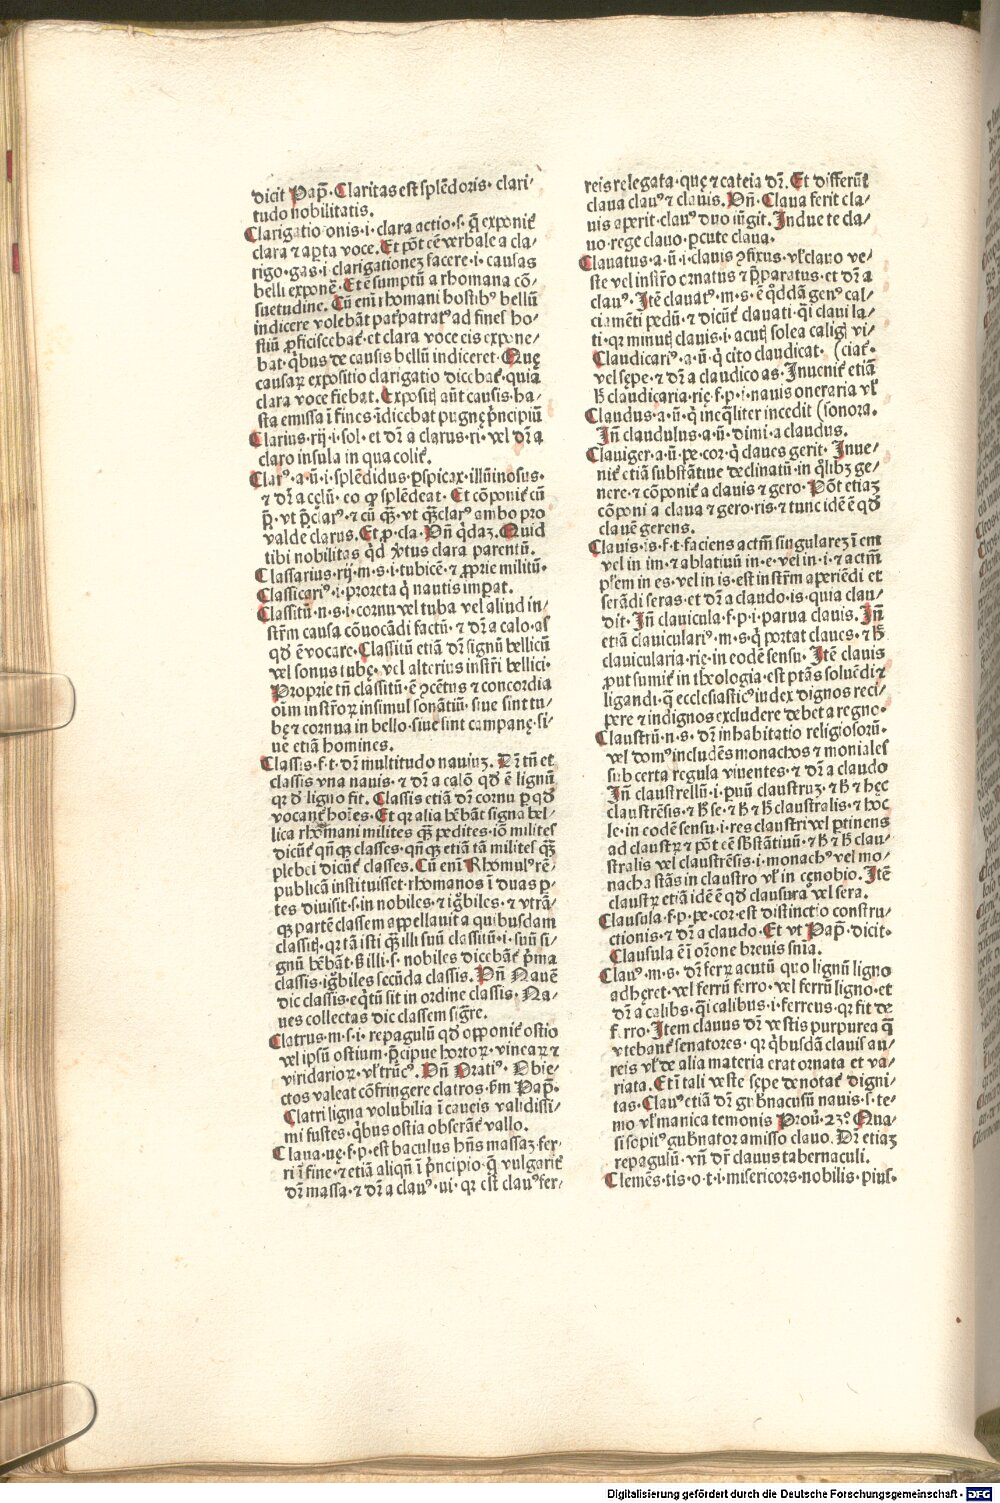 dicit Pap̄. Claritas est splēdoris. clari/
tudo nobilitatis.
Clarigatio onis. i. clara actio. s. q̄ exponit̄
clara ⁊ aꝑta voce. Et pōt eē verbale a cla/
rigo. gas. i. clarigationeꝫ facere. i. causas
belli exponē. Et ē sumptū a rhomana cō/
suetudine. Cū eni rhomani hostibꝰ bellū
indicere volebāt patꝛpatratꝰ ad fines ho/
stiū ꝓficiscebat̄. et clara voce eis expone/
bat. qͥbus de causis bellū indiceret. Quę
causaꝝ expositio clarigatio dicebat̄. quia
clara voce fiebat. Expositꝭ aūt causis. ha/
sta emissa ī fines īdicebat pugnę pͥncipiū
Clarius. rij. i. sol. et dr̄ a clarus. ri. vel dr̄ a
claro insula in qua colit̄.
Clarꝰ. a. ū. i. splēdidus. ꝑspicax. illūinosus.
⁊ dr̄ a cęlū. eo ꝙ splēdeat. Et cōponit̄ cū
p̄. vt p̄clarꝰ. ⁊ cū qͣꝫ. vt qͣꝫclarꝰ ambo pro
valde clarus. Et ꝓ. cla. Vn̄ qͥdaꝫ. Quid
tibi nobilitas qͥd ꝟtus clara parentū.
Classarius. rij. m. s. i. tubicē. ⁊ ꝓprie militū.
Classicariꝰ. i. proreta qͥ nautis imꝑat.
Classicū. n. s. i. cornu vel tuba vel aliud in/
str̄m causa cōuocādi factū. ⁊ dr̄ a calo. as
qđ ē vocare. Classicū etiā dr̄ signū bellicū
vel sonus tubę. vel alterius instr̄i bellici.
Proprie tn̄ classicū. ē ꝯcētus ⁊ concordia
oīm instr̄oꝝ insimul sonātiū. siue sint tu/
bę ⁊ cornua in bello. siue sint campanę. si/
ue etiā homines.
Classis. f. t. dr̄ multitudo nauiuꝫ. Dr̄ tn̄ et
classis vna nauis. ⁊ dr̄ a calō qđ ē lignū
qꝛ đ ligno fit. Classis etiā dr̄ cornu ꝑ qđ
vocant̄ hoīes. Et qꝛ alia hēbāt signa bel/
lica rhomani milites qͣꝫ pedites. iō milites
dicūt̄ qn̄qꝫ classes. qn̄qꝫ etiā tā milites qͣꝫ
plebei dicūt̄ classes. Cū eni Rhomulꝰ rē.
publicā instituisset. rhomanos ī duas ꝑ/
tes diuisit. s. in nobiles. ⁊ ig̊biles. ⁊ vtrā/
qꝫ partē classem appellauit a quibusdam
classicꝭ. qꝛ tā isti qͣꝫ illi suū classicū. i. suū si/
gnū hēbāt. ꝫ illi. s. nobiles dicebāt̄ pͥma
classis. ig̊biles secūda classis. Vn̄ Nauē
dic classis. eqͥtū sit in ordine classis. Na/
ues collectas dic classem sig̊re.
Clatrus. m. s. i. repagulū qđ opponit̄ ostio
vel ipsū ostium. p̄cipue hortoꝝ. vineaꝝ ⁊
viridarioꝝ. vł trūcꝰ. Vn̄ Oratiꝰ. Obie/
ctos valeat cōfringere clatros. ẜm Pap̄.
Clatri ligna volubilia ī caueis validissi/
mi fustes. qͥbus ostia obserāt̄ vallo.
Claua. uę. f. p. est baculus hn̄s massaꝫ fer/
ri ī fine. ⁊ etiā aliqn̄ ī pͥncipio. q̄ vulgarit̄
dr̄ massa. ⁊ dr̄ a clauꝰ. ui. qꝛ est clauꝰ fer/
reis relegata. quę ⁊ cateia dr̄. Et differūt̄
claua clauꝰ ⁊ clauis. Vn̄. Claua ferit cla/
uis aperit. clauꝰ duo iūgit. Indue te cla/
uo. rege clauo. ꝑcute claua.
Clauatus. a. ū. i. clauis ꝯfixus. vł clauo ve/
ste vel instr̄o ornatus ⁊ p̄paratus. et dr̄ a
clauꝰ. Itē clauatꝰ. m. s. ē qͥddā genꝰ cal/
ciamēti pedū. ⁊ dicūt̄ clauati. qͣi claui la/
ti. qꝛ minutꝭ clauis. i. acutꝭ solea caligę vi/
Claudicariꝰ. a. ū. qͥ cito claudicat. (ciat̄.
vel sępe. ⁊ dr̄ a claudico as. Inuenit̄ etiā
ħ claudicaria. rię. f. p. i. nauis oneraria vł
Claudus. a. ū. qͥ ineqͣliter incedit (sonora.
In̄ claudulus. a. ū. dimi. a claudus.
Clauiger. a. ū. pe. cor. qͥ claues gerit. Inue/
nit̄ etiā substātiue declinatū. in qͦlibꝫ ge/
nere. ⁊ cōponit̄ a clauis ⁊ gero. Pōt etiaꝫ
cōponi a claua ⁊ gero. ris. ⁊ tunc idē ē qđ
clauē gerens.
Clauis. is. f. t. faciens actm̄ singulareꝫ ī em
vel in im. ⁊ ablatiuū in. e. vel in. i. ⁊ actm̄
pl̄em in es. vel in is. est instr̄m aperiēdi et
serādi seras. et dr̄ a claudo. is. quia clau/
dit. In̄ clauicula. f. p. i. parua clauis. In̄
etiā clauiculariꝰ. m. s. qͥ portat claues. ⁊ ħ
clauicularia. rię. in eodē sensu. Itē clauis
ꝓut sumit̄ in theologia. est ptās soluēdi ⁊
ligandi. q̄ ecclesiasticꝰ iudex dignos reci/
pere ⁊ indignos excludere debet a regno.
Claustrū. n. s. dr̄ inhabitatio religiosorū.
vel domꝰ includēs monachos ⁊ moniales
sub certa regula viuentes. ⁊ dr̄ a claudo
In̄ claustrellū. i. ꝑuū claustruꝫ. ⁊ ħ ⁊ hęc
claustrēsis. ⁊ ħ se. ⁊ ħ ⁊ ħ claustralis. ⁊ hoc
le. in eodē sensu. i. res claustri vel ꝑtinens
ad claustꝝ ⁊ pōt eē sb̄stātiuū. ⁊ ħ ⁊ ħ clau/
stralis vel claustrēsis. i. monachꝰ vel mo/
nacha stās in claustro vł in cęnobio. Itē
claustꝝ etiā idē ē qđ clausura vel sera.
Clausula. f. p. pe. cor. est distinctio constru/
ctionis. ⁊ dr̄ a claudo. Et vt Pap̄. dicit.
Clausula ē ī orōne breuis snīa.
Clauꝰ. m. s. dr̄ ferꝝ acutū quo lignū ligno
adhęret. vel ferrū ferro. vel ferrū ligno. et
dr̄ a calibs. qͣi calibus. i. ferreus. qꝛ fit de
f. rro. Item clauus dr̄ vestis purpurea q̄
vtebant̄ senatores. qꝛ qͥbusdā clauis au/
reis vł de alia materia erat ornata et va/
riata. Et ī tali veste sępe denotat̄ digni/
tas. Clauꝰ etiā dr̄ gub̄nacusū nauis. s. te/
mo vł manica temonis Prou. 23º. Qua/
si sopitꝰ gub̄nator amisso clauo. Dr̄ etiaꝫ
repagulū. vn̄ dr̄ clauus tabernaculi.
Clemēs. tis. o. t. i. misericors. nobilis. piuſ.
Digitalisierung gefördert durch die Deutsche Forschungsgemeinschaft - DFG